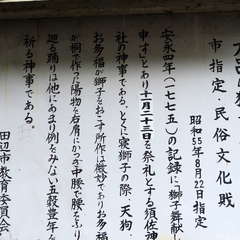 市指定・民俗文化財
昭和55年8月22日指定
安永四年(一七七五)の記録に「獅子舞献
申す」とあり十一月二十三日を祭礼とする須佐神
社の神事である。とくに寝獅子の際、天狗、
お多福が獅子をおこす所作は微妙でありお多福
が桐で作った陽物を右肩にかつぎ中腰で腰をふり
廻る踊りは他にあまり例をみない五穀豊年を
祈る神事である。
田辺市教育委員会